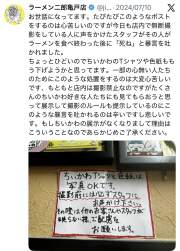 ラーメン二郎亀戸店 @ji... · 2024/07/10
お世話になってます。たびたびこのようなポスト
をするのは心苦しいのですが今日も店内で無断撮
影をしている人に声をかけたスタッフがその人が
ラーメンを食べ終わった後に「死ね」と暴言を吐
かれました。
ちょっとひどいのでちいかわのTシャツや色紙もも
う下げようと思ってます。一部の心無い人たち
のためにこのような処置をするのは大変心苦しい
です。もともと店内は撮影禁止なのですがたくさ
んのちいかわ好きな人たちにも見てもらおうと思
って展示して撮影のルールも提示しているのにこ
のような暴言を吐かれるのは辛いですし悲しいで
す。もしちいかわの展示がなくなりまして理由は
こういうことなのであらかじめご了承ください。
ちいかわTシャツと色紙は
写真OKです。
撮影前には必ずスタッフに
お声がけ下さい。
お願いします。